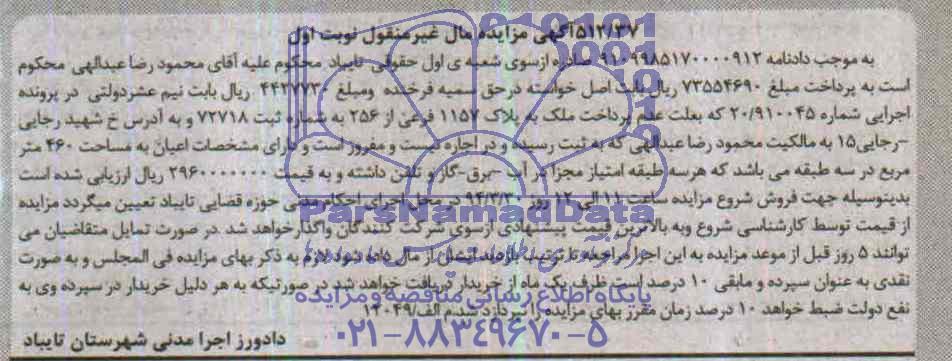 ۵۱۲/۳۷آگهی مزایده مال غیرمنقول نوبت اول
به موجب دادنامه ۹۱۰۹۹۸۵۱۷۰۰۰۰۹۱۲ صادره ازسوی شعبه ی اول حقوقی تایباد محکوم علیه آقای محمود رضا عبدالهی محکوم
است به پرداخت مبلغ ۷۳۵۵۴۶۹۰ ریال بابت اصل خواسته درحق سمیه فرخنده ومبلغ ۴۴۲۷۷۳۰ ریال بابت نیم عشردولتی در پرونده
اجرایی شماره ۲۰/۹۱۰۰۴۵ که بعلت عدم پرداخت ملک به پلاک ۱۱۵۷ فرعی از ۲۵۶ به شماره ثبت ۷۲۷۱۸ و به آدرس خ شهید رجایی
-رجایی۱۵ به مالکیت محمود رضا عبدالهی که به ثبت رسیده و در اجاره نیست و مفروز است و دارای مشخصات اعیان به مساحت ۴۶۰ متر
مربع در سه طبقه می باشد که هرسه طبقه امتیاز مجزا در آب -برق-گاز و تلفن داشته و به قیمت ۲۹۶۰۰۰۰۰۰۰ ریال ارزیابی شده است
بدینوسیله جهت فروش شروع مزایده ساعت ۱۱ الی ۱۲ روز ۹۴/۳/۳۰ در محل اجرای احکام مدنی حوزه قضایی تایباد تعیین میگردد مزایده
از قیمت توسط کارشناسی شروع وبه بالاترین قیمت پیشنهادی ازسوی شرکت کنندگان واگذارخواهد شد .در صورت تمایل متقاضیان می
توانند ۵ روز قبل از موعد مزایده به این اجرا مراجعه تا ترتیب بازدید ایشان از مال داده شود لازم به ذکر بهای مزایده فی المجلس و به صورت
نقدی به عنوان سپرده و مابقی ۱۰ درصد است ظرف یک ماه از خریدار دریافت خواهد شد در صورتیکه به هر دلیل خریدار در سپرده وی به
نفع دولت ضبط خواهد ۱۰ درصد زمان مقرر بهای مزایده را نپردازد شد.م الف/۱۴۰۴۹
دادورز اجرا مدنی شهرستان تایباد
ParsNamadData
پایگاه اطلاع رسانی مناقصه و مزایده
۰۲۱-۸۸۳۴۹۶۷۰-۵